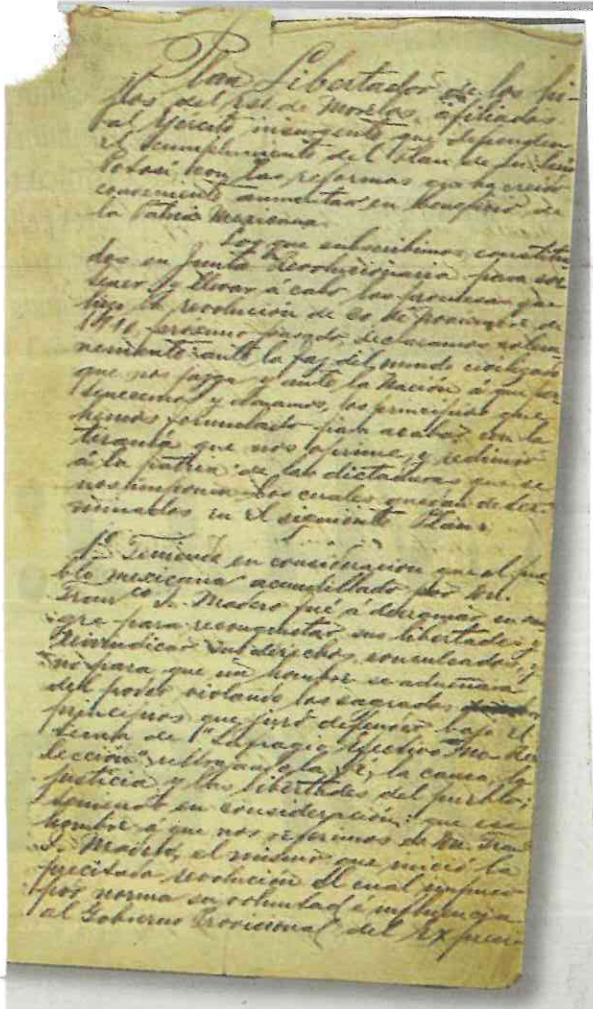 Plan Libertador de los hi-
jos del Est. de Morelos, afiliados
al Ejército insurgente que defienden
el cumplimiento del Plan de San Luis
Potosí con las reformas que ha creido
conveniente aumentar en beneficio de
la Patria Mexicana.
Los que subscribimos, constitui
dos en Junta Revolucionaria para sos
tener y llevar á cabo las promesas que
hizo la revolución de 20 de Noviembre de
1910, proximo pasado, declaramos solem
nemente ante la faz del mundo civilizado
que nos juzga y ante la Nación á que per
tenecemos y amamos, los principios que
hemos formulado para acabar con la
tiranía que nos oprime, y redimir
á la patria de las dictaduras que se
nos imponen los cuales quedan deter-
minados en el siguiente Plan:
1º Teniendo en consideracion que el pue
blo mexicano acaudillado por Dn.
Franco. I. Madero fué á derramar su san
gre para reconquistar sus libertades y
reivindicar sus derechos conculcados, y
no para que un hombre se adueñara
del poder violando los sagrados
principios que juró defender bajo el
lema de "Sufragio Efectivo" "No Ree
lección", ultrajando la fé, la causa, la
justicia y las libertades del pueblo;
teniendo en consideración: que ese
hombre á que nos referimos es Dn. Fran
I. Madero, el mismo que inició la
precitada revolución el cual impuso
por norma su voluntad é influencia
al Gobierno Provisional del Ex presi